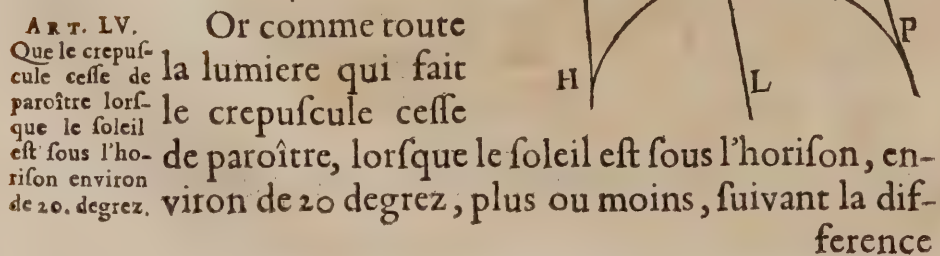 ART. LV.
Que le crepuſ-
cule ceſſe de
paroître lorſ-
que le ſoleil
eſt ſous l'ho-
riſon environ
de 20. degrez.
Or comme toute
la lumiere qui fait
le crepuſcule ceſſe
de paroître, lorſque le ſoleil eſt ſous l'horiſon, en-
viron de 20 degrez, plus ou moins, ſuivant la dif-
ference
H
L
P